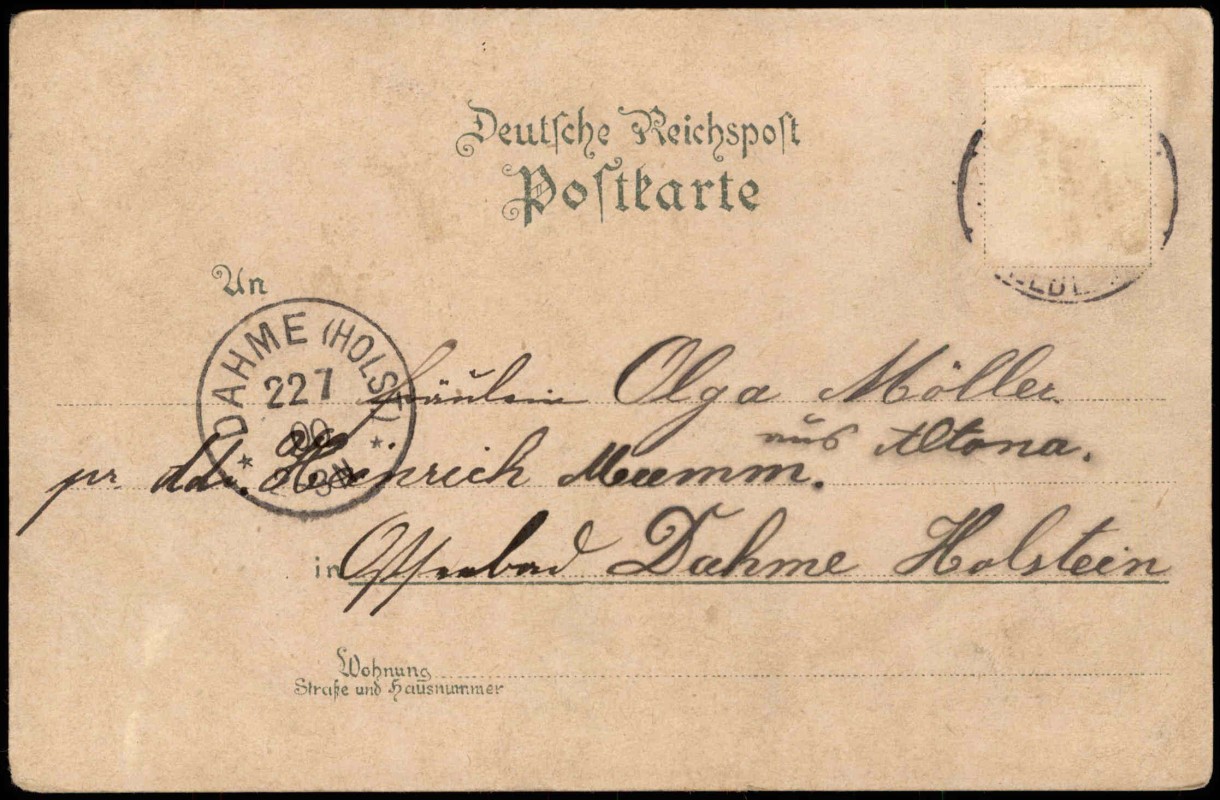 Deutsche Reichspost
Postkarte
An
DAHME (HOLST)
22 7
00
Fräulein Olga Möller
aus Altona.
pr. Heinrich
in Ostseebad Dahme Holstein
Wohnung
Straße und Hausnummer